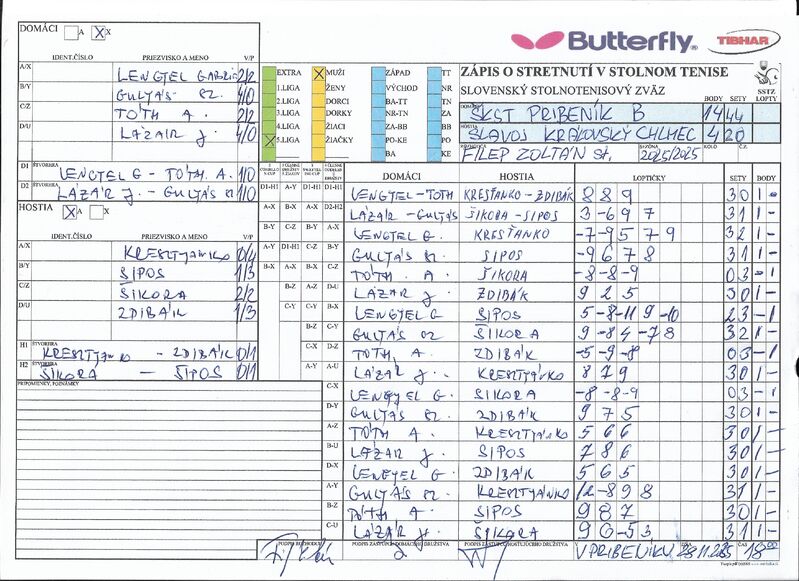 DOMÁCI A X
Butterfly
TIBHAR
SSTZ
IDENT.ČÍSLO PRIEZVISKO A MENO V/P
A/X LENGYEL GABRIEL 2/2
B/Y GULYÁS SZ. 4/0
C/Z TÓTH A. 2/2
D/U LÁZÁR J. 4/0
D1 ŠTVORHRA LENGYEL G - TÓTH A. 1/0
D2 LÁZÁR J. - GULYÁS SZ 1/0
HOSTIA X X
IDENT.ČÍSLO PRIEZVISKO A MENO V/P
A/X KRESZTYANKO 0/4
B/Y ŠIPOS 1/3
C/Z ŠIKORA 2/2
D/U ZDIBÁK 1/3
H1 ŠTVORHRA KRESZTYANKO - ZDIBÁK 0/1
H2 ŠTVORHRA ŠIKORA - ŠIPOS 0/1
PRIPOMIENKY, POZNÁMKY
EXTRA X MUŽI ZÁPAD TT
1.LIGA ŽENY VÝCHOD NR
2.LIGA DORCI BA-TT TN
3.LIGA DORKY NR-TN ZA
4.LIGA ŽIACI ZA-BB BB
X 5.LIGA ŽIAČKY PO-KE PO
BA KE
ZÁPIS O STRETNUTÍ V STOLNOM TENISE
SLOVENSKÝ STOLNOTENISOVÝ ZVÄZ BODY SETY LOPTY
ŠKST PRIBENÍK B 14 44
HOSTIA SLAVOJ KRÁĽOVSKÝ CHLMEC 4 20
FILEP ZOLTÁN st. SEZÓNA 2025/2025 KOLO Č.Z.
DOMÁCI HOSTIA LOPTIČKY SETY BODY
D1-H1 A-Y D1-H1 D1-H1 LENGYEL - TOTH KRESŤANKO - ZDIBÁK 8 8 9 3 0 1 -
A-X B-X A-X D2-H2 LÁZÁR - GULYÁS ŠIKORA - SIPOS 3 -6 9 7 3 1 1 -
B-Y C-Z B-Y A-X LENGYEL G. KRESŤANKO -7 -9 5 7 9 3 2 1 -
A-Y D1-H1 C-Z B-Y GULYÁS SZ SIPOS -9 6 7 8 3 1 1 -
B-X A-X B-X C-Z TÓTH A. ŠIKORA -8 -8 -9 0 3 - 1
B-Y A-Y D-U LÁZÁR J ZDIBÁK 9 2 5 3 0 1 -
C-Y B-X LENGYEL G SIPOS 5 -8 -11 9 -10 2 3 - 1
B-Z C-Y GULYÁS SZ ŠIKORA 9 -8 4 -7 8 3 2 1 -
C-X D-Z TÓTH A. ZDIBÁK -5 -9 -8 0 3 - 1
A-Y A-U LÁZÁR J. KRESZTYÁNKO 8 7 9 3 0 1 -
C-X LENGYEL G SIKORA -8 -8 -9 0 3 - 1
D-Y GULYÁS SZ. ZDIBÁK 9 7 5 3 0 1 -
A-Z TÓTH A. KRESZTYÁNKO 5 6 6 3 0 1 -
B-U LÁZÁR J. SIPOS 7 8 6 3 0 1 -
D-X LENGYEL G. ZDIBÁK 5 6 5 3 0 1 -
A-Y GULYÁS SZ. KRESZTYÁNKO 12 -8 9 8 3 1 1 -
B-Z TÓTH A. SIPOS 9 8 7 3 0 1 -
C-U LÁZÁR J. ŠIKORA 9 6 -5 3 3 1 1 -
PODPIS ROZHODCU PODPIS ZÁSTUPCU DOMÁCEHO DRUŽSTVA PODPIS ZÁSTUPCU HOSŤUJÚCEHO DRUŽSTVA V PRIBENÍKU 28.11.2025 ČAS 18 00